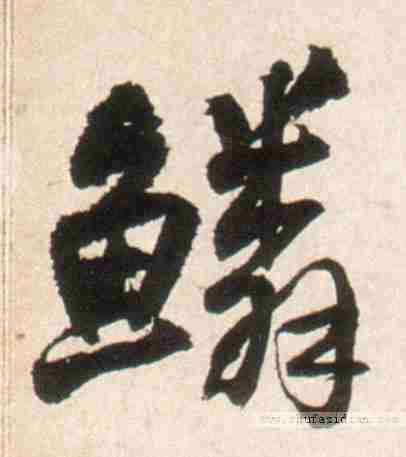 鳞
www.shufazidian.com